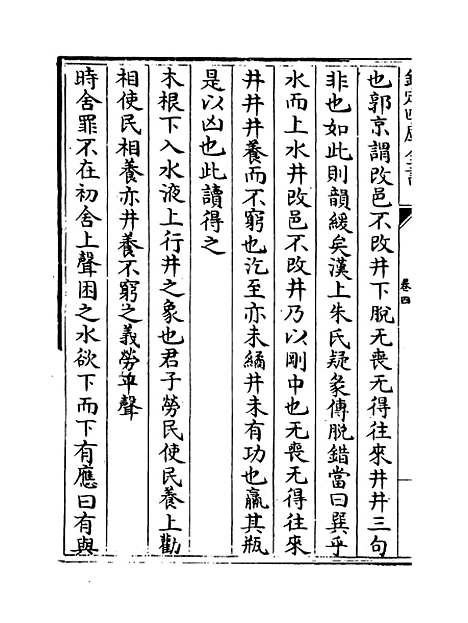 欽定四庫全書
卷四
也郭京謂改邑不改井下脫无喪无得往來井井三句
非也如此則韻緩矣漢上朱氏疑彖傳脫錯當曰巽乎
水而上水井改邑不改井乃以剛中也无喪无得往來
井井井養而不窮也汔至亦未繘井未有功也羸其瓶
是以凶也此讀得之
木根下入水液上行井之象也君子勞民使民養上勸
相使民相養亦井養不窮之義勞平聲
時舍罪不在初舍上聲困之水欲下而下有應曰有與